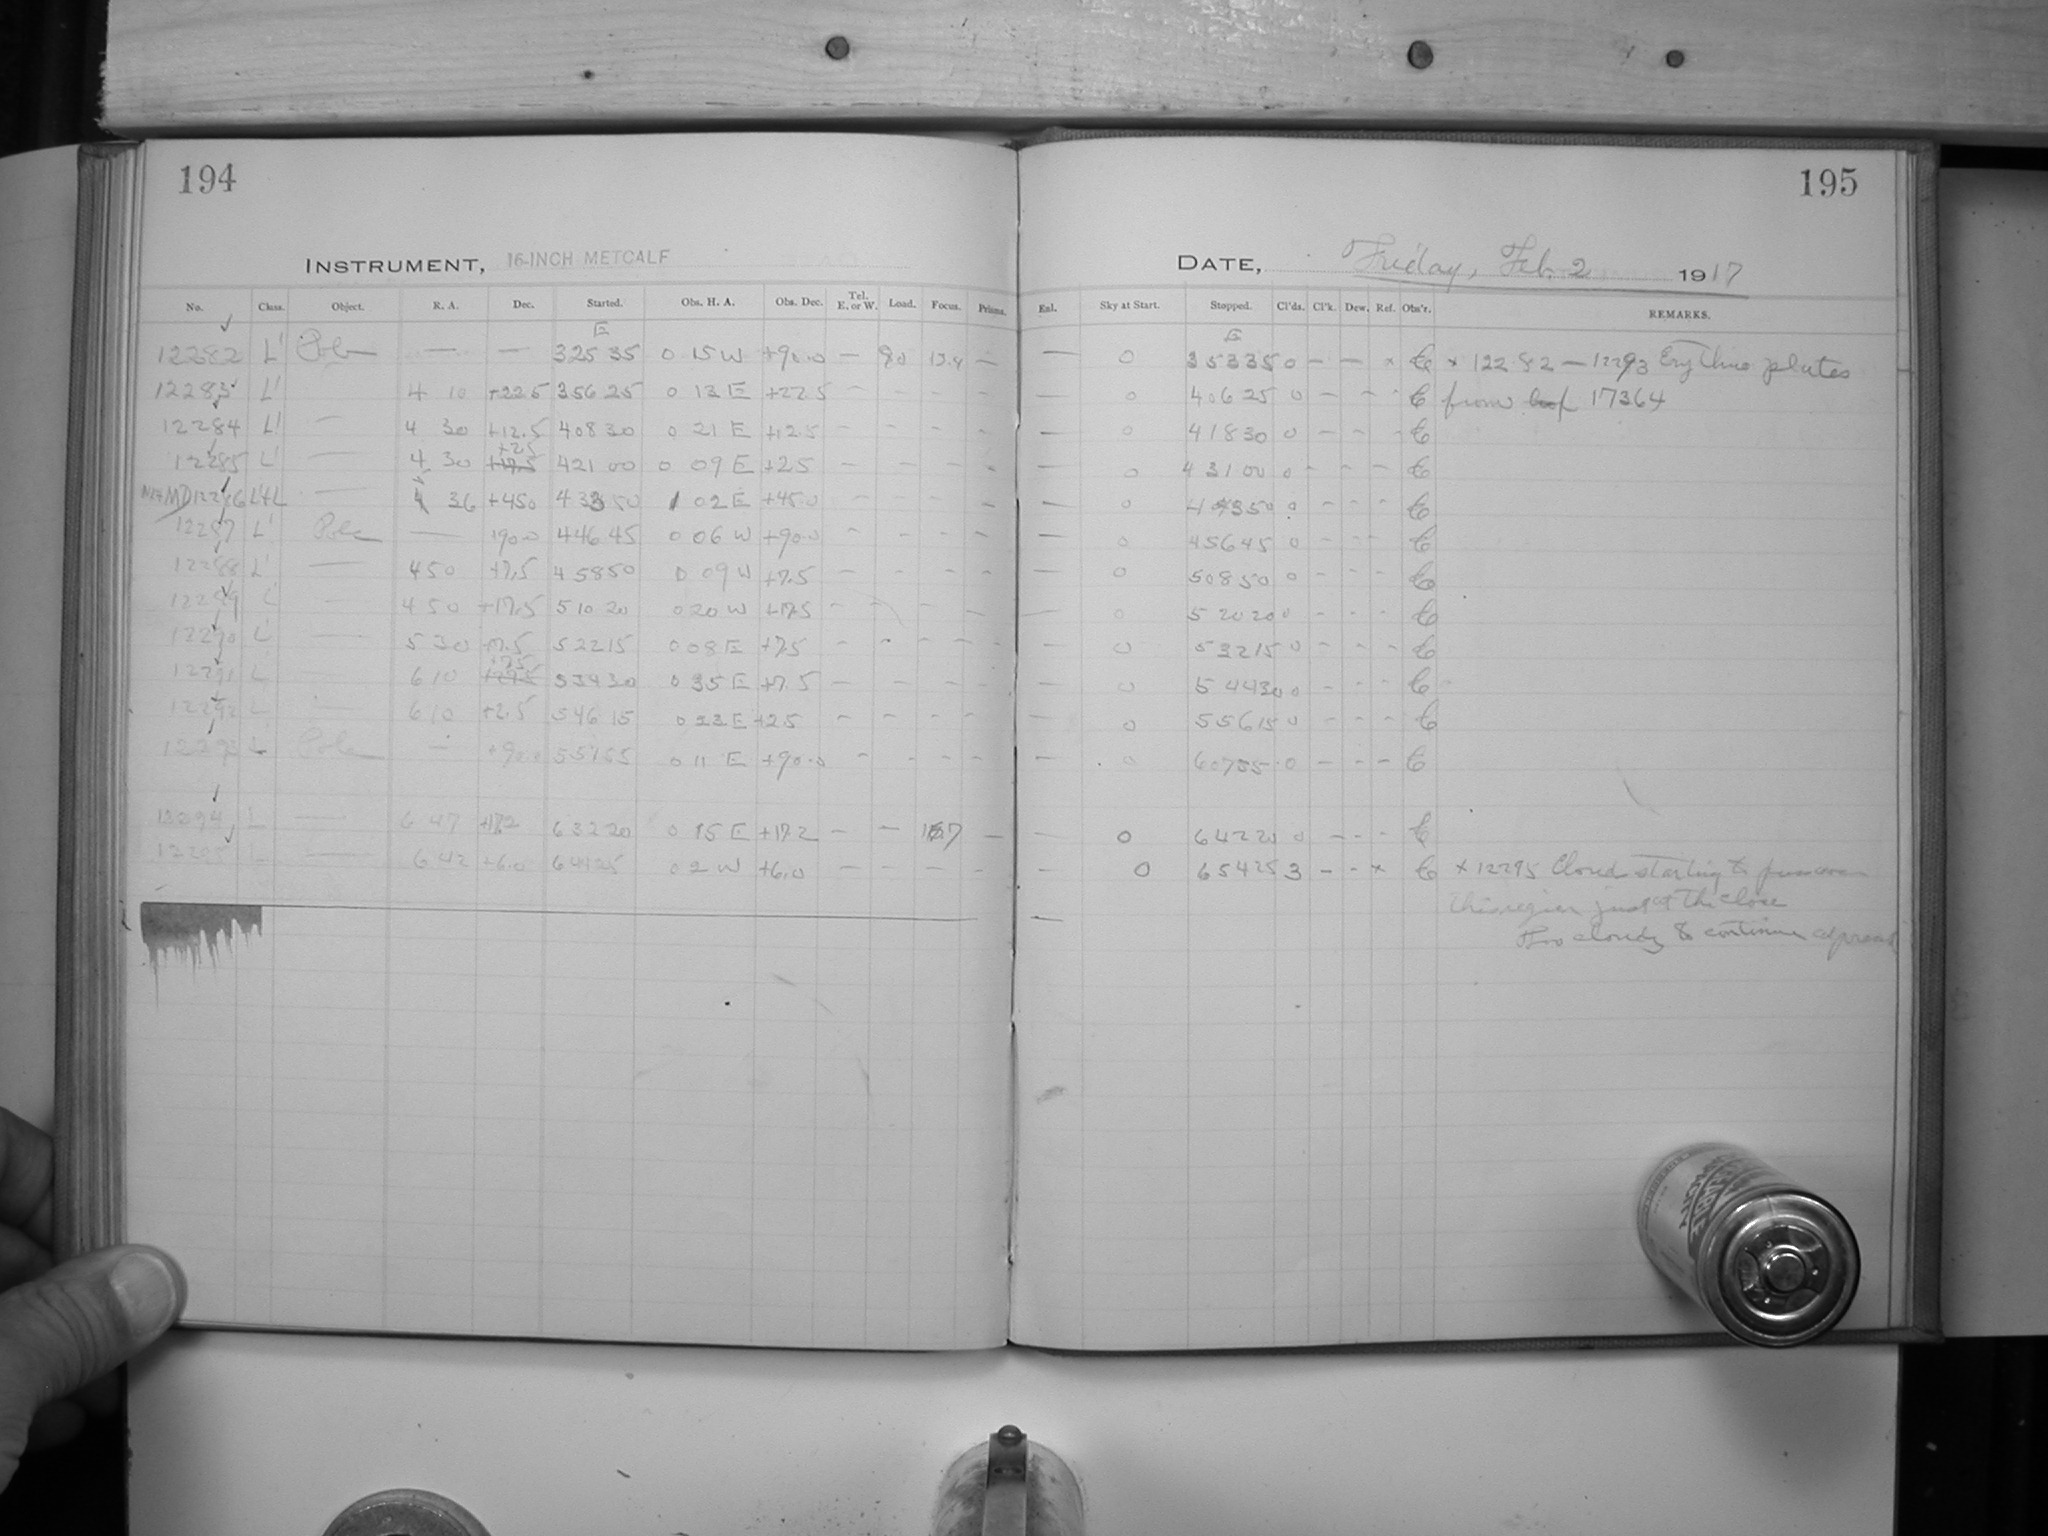 194
195
INSTRUMENT, 16-INCH METCALF
DATE, Friday, Feb. 2 1917
No. Class. Object. R. A. Dec. Started. Obs. H. A. Obs. Dec. Tel. E. or W. Load. Focus. Prisms. Exl. Sky at Start. Stopped. Cl'ds. Cl'k. Dew. Ref. Obs'r. REMARKS.
E E
12282 L' Pole — — 32535 0 15 W +90.0 — 90 13.4 — — 0 35335 0 – — × C × 12282 — 12293 Erythro plates
12283 L' 4 10 +22.5 35625 0 13 E +22.5 – – – – — 0 40625 0 – – – C from 17364
12284 L' — 4 30 +12.5 40830 0 21 E +12.5 – – – – — 0 41830 0 – – – C
+2.5
12285 L' — 4 30 42100 0 09 E +2.5 – – – – — 0 43100 0 – – – C
12286 L'+L — 36 +45.0 43350 02 E +45.0 – – – – — 0 0 – – – C
12287 L' Pole — +90.0 44645 0 06 W +90.0 – – – – — 0 45645 0 – – – C
12288 L' — 4 50 +7.5 45850 0 09 W +7.5 – – – – — 0 50850 0 – – – C
12289 L' — 4 50 +17.5 51020 0 20 W +17.5 – – – – — 0 52020 0 – – – C
12290 L' — 5 30 +7.5 52215 0 08 E +7.5 – – – – — 0 53215 0 – – – C
+7.5
12291 L' — 6 10 53430 0 35 E +7.5 – – – – — 0 54430 0 – – – C
12292 L' — 6 10 +2.5 54615 0 23 E +2.5 – – – – — 0 55615 0 – – – C
12293 L' Pole — +90.0 55755 0 11 E +90.0 – – – – — 0 60755 0 – – – C
12294 L — 6 47 +17.2 63220 0 15 E +17.2 – – — — 0 64220 0 – – – C
12295 L — 6 42 +6.0 64425 0 2 W +6.0 – – – – – 0 65425 3 – – × C × 12295 Cloud starting to
this region just at the close
Too cloudy to continue